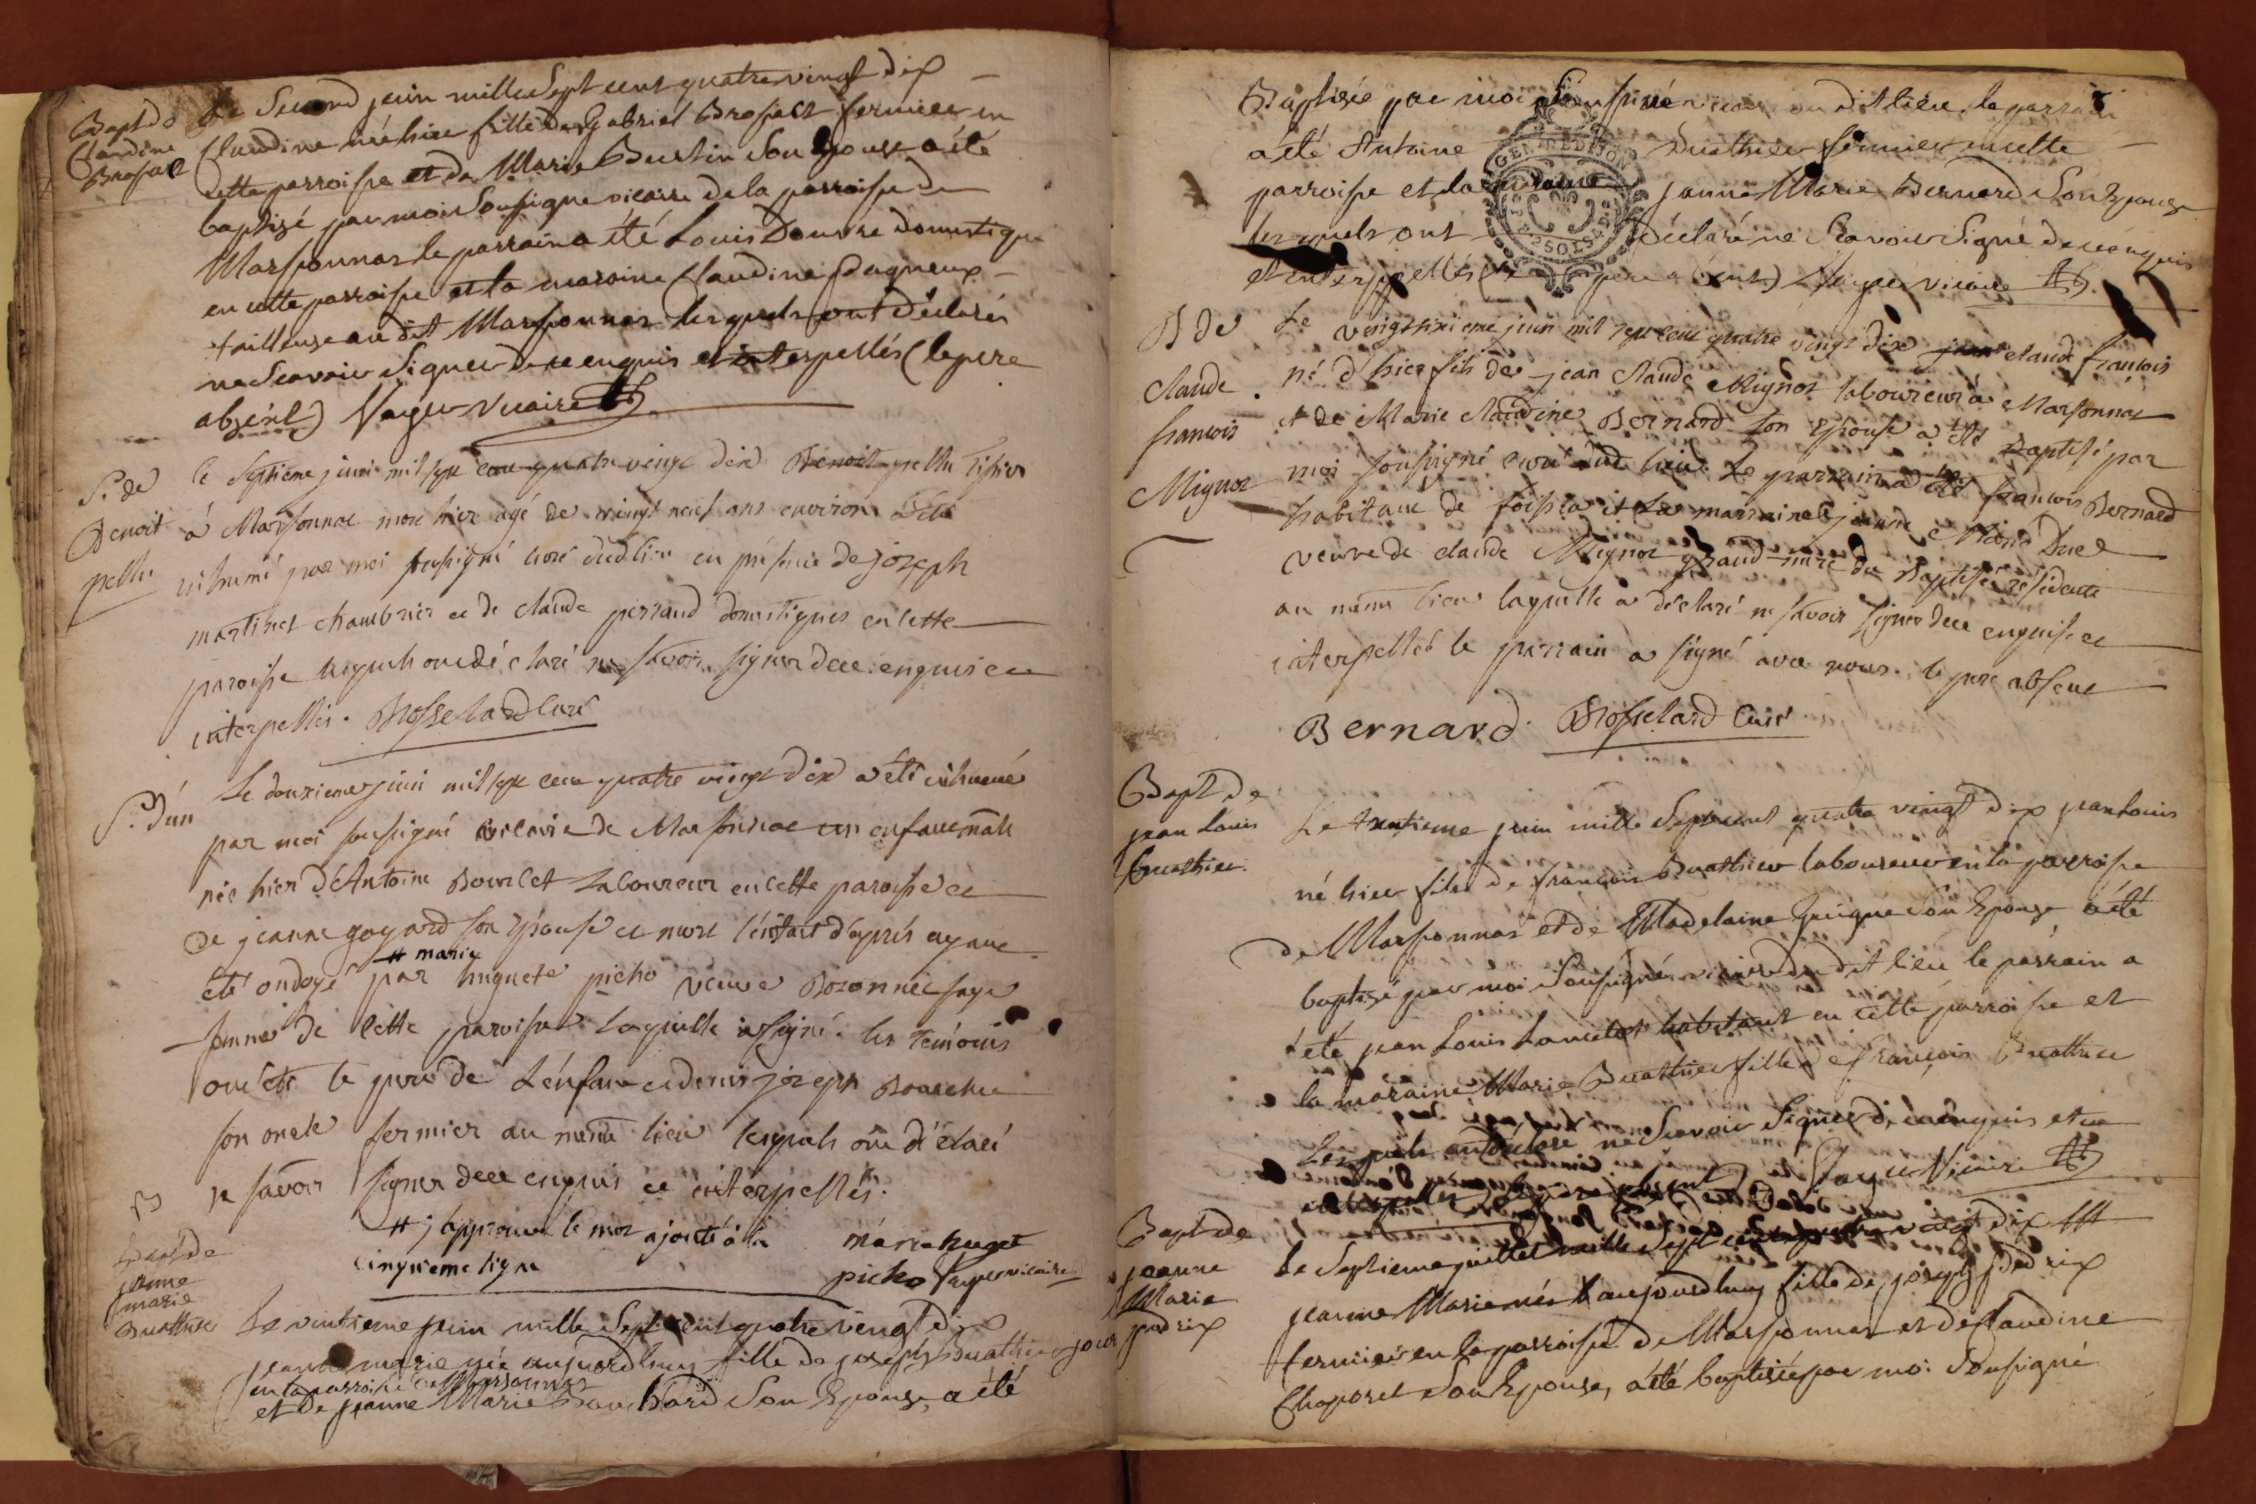 Bapt de
Claudine
Brossard
Le Second juin mille Sept cent quatre vingt dix
Claudine née hier fille de Gabriel fermier en
cette parroisse et de Marie Burtin Son Epouse a été
baptisé par moi Sousigné vicaire de la parroisse de
Marsonnas le parrain a été Louis Douvre domestique
en cette parroisse et la maraine Claudine Pagneux
tailleuse au dit Marsonnas lesquels ont déclarés
ne Scavoir Signer de ce enquis et interpellés (le pere
absent) vicaire
S. de
Benoit
pellu
le Septieme juin mil sept cent quatre vingt dix Benoit pellu
á Marsonnas mort hier agé de vingt neuf ans environ a été
inhumé par moi soussigné curé dudt lieu en présence de joseph
martinet chambrier et de claude perraud domestiques en cette
paroisse lesquels ont déclaré ne savoir signer de ce enquis et
interpellés. Brosselard Curé
S. d'un
Le douzieme juin mil sept cent quatre vingt dix a été inhumé
par moi soussigné vicaire de Marsonnas un enfant mâle
née hier d'Antoine Bourlet Laboureur en cette paroisse et
de jeanne goyard son Epouse et mort l'instant d'après ayant
# marie
été ondoyé par huguete picho veuve sage
femme de cette paroisse laquelle a signé. les temoins
ont été le pere de l'enfant et denis joseph
son oncle fermier au même lieu lesquels ont déclaré
ne savoir signer de ce enquis et interpellés.
# j'approuve le mot ajouté á la
cinquieme ligne
máriehuget
picho vicaire
B
Bapt de
jeanne
marie
Buathier
Le vintieme juin mille Sept cent quatre vingt dix
jeanne marie née aujourdhuy fille de joseph Buathier
en la parroisse de Marsonnas
et de jeanne Marie Son Epouse, a été
Baptisée par moi Sousigné vicaire du dit lieu, le parrain
a été Antoine Buathier fermier en cette
parroisse et la maraine jeanne Marie Bernard Son Epouse
lesquels ont déclaré ne Scavoir Signé de ce enquis
et interpellés (le pere absent) vicaire
B de
Claude
francois
Mignot
Le vingt sixieme juin mil sept cent quatre vingt dix claude francois
né d'hier fils de jean Claude Mignot laboureur á Marsonnas
et de Marie claudine Bernard son Epouse a été Baptisé par
moi soussigné curé dudt lieu. Le parrain a été francois Bernard
habitant de foissia et la marraine jeanne Marie
veuve de claude Mignot grand-mere du Baptisé résidente
au même lieu laquelle a déclaré ne savoir signer de ce enquise et
interpellée le parrain a signé avec nous. le pere absent
Bernard. Brosselard Curé
Bapt de
jean Louis
Buathier.
Le trentieme juin mille Sept cent quatre vingt dix jean Louis
né hier fils de francois Buathier laboureur en la parroisse
de Marsonnas et de Madelaine Son Epouse a été
baptisé par moi Sousigné vicaire du dit lieu le parrain a
été jean Louis habitant en cette parroisse et
la maraine Marie Buathier fille de francois Buathier
Lesquels ont déclaré ne Scavoir Signer de ce enquis et
interpellés (le pere absent) Vicaire
Bapt de
jeanne
Marie
pedrix
Le Septieme juillet mille Sept cent quatre vingt dix
jeanne Marie née aujourdhuy fille de joseph pedrix
fermier en la parroisse de Marsonnas et de Claudine
Chaposet Son Epouse, a été baptisée par moi Sousigné